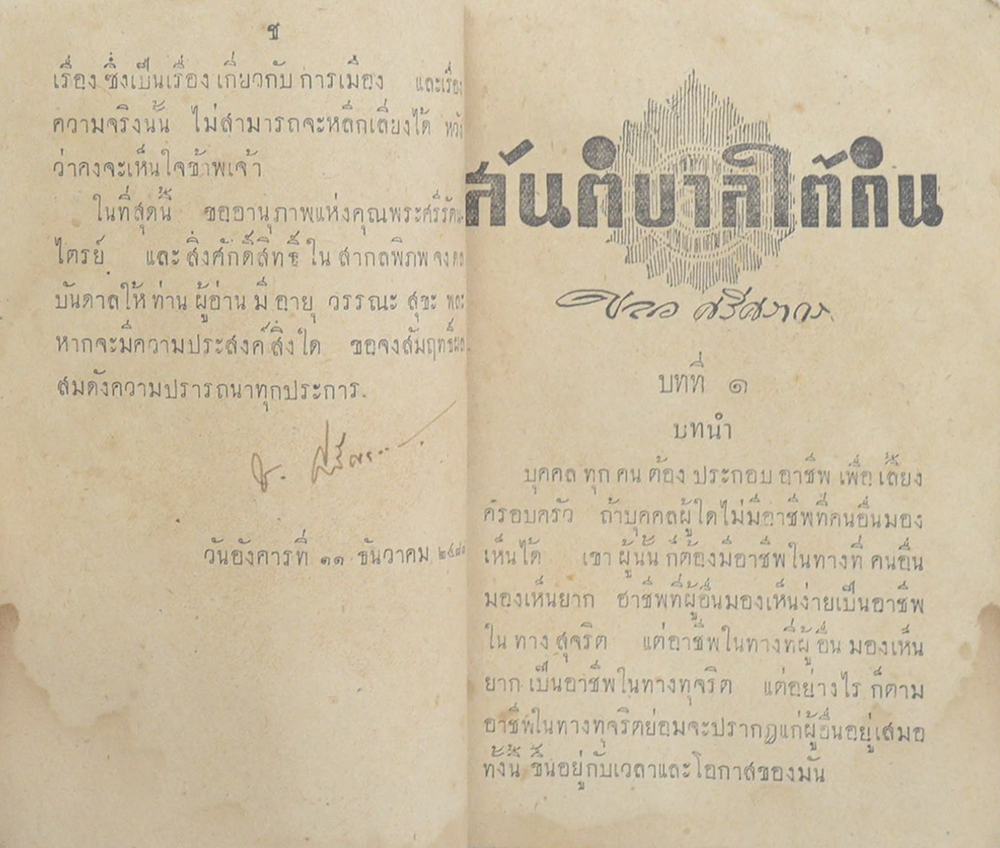 ช
เรื่อง ซึ่งเป็นเรื่อง เกี่ยวกับ การเมือง และเรื่อง
ความจริงนั้น ไม่สามารถจะหลีกเลี่ยงได้ หวัง
ว่าคงจะเห็นใจข้าพเจ้า
ในที่สุดนี้ ขออานุภาพแห่งคุณพระศรีรัตน
ไตรย์ และ สิ่งศักดิ์สิทธิ์ ใน สากลพิภพ จงดล
บันดาลให้ ท่าน ผู้อ่าน มี อายุ วรรณะ สุขะ พละ
หากจะมีความประสงค์สิ่งใด ขอจงสัมฤทธิ์ผล
สมดังความปรารถนาทุกประการ.
ช. ศรีศรา
วันอังคารที่ ๑๑ ธันวาคม
สันติบาลใต้ดิน
ชลอ ศรีศรากร
บทที่ ๑
บทนำ
บุคคล ทุก คน ต้อง ประกอบ อาชีพ เพื่อ เลี้ยง
ครอบครัว ถ้าบุคคลผู้ใดไม่มีอาชีพที่คนอื่นมอง
เห็นได้ เขา ผู้นั้น ก็ต้องมีอาชีพในทางที่ คนอื่น
มองเห็นยาก อาชีพที่ผู้อื่นมองเห็นง่ายเป็นอาชีพ
ใน ทาง สุจริต แต่อาชีพในทางที่ผู้ อื่น มองเห็น
ยาก เป็นอาชีพในทางทุจริต แต่อย่างไร ก็ตาม
อาชีพในทางทุจริตย่อมจะปรากฏแก่ผู้อื่นอยู่เสมอ
ทั้งนี้ ขึ้นอยู่กับเวลาและโอกาสของมัน